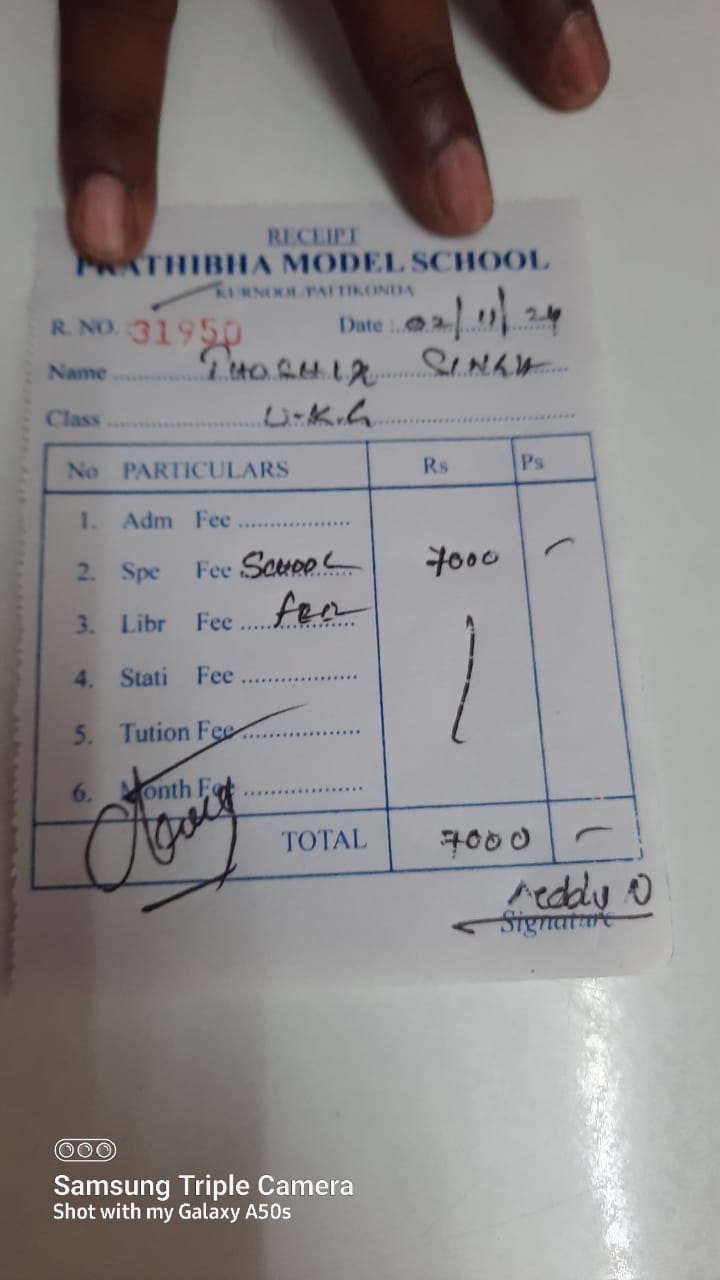 RECEIPT
PRATHIBHA MODEL SCHOOL
KURNOOL/PATTIKONDA
R. NO. 31950 Date : 02/11/24
Name SINGH
Class U-K.G
No PARTICULARS Rs Ps
1. Adm Fee
2. Spe Fee SCHOOL 7000 –
3. Libr Fee fee
4. Stati Fee
5. Tution Fee
6. Month Fee
TOTAL 7000 –
reddy
Signature
Samsung Triple Camera
Shot with my Galaxy A50s